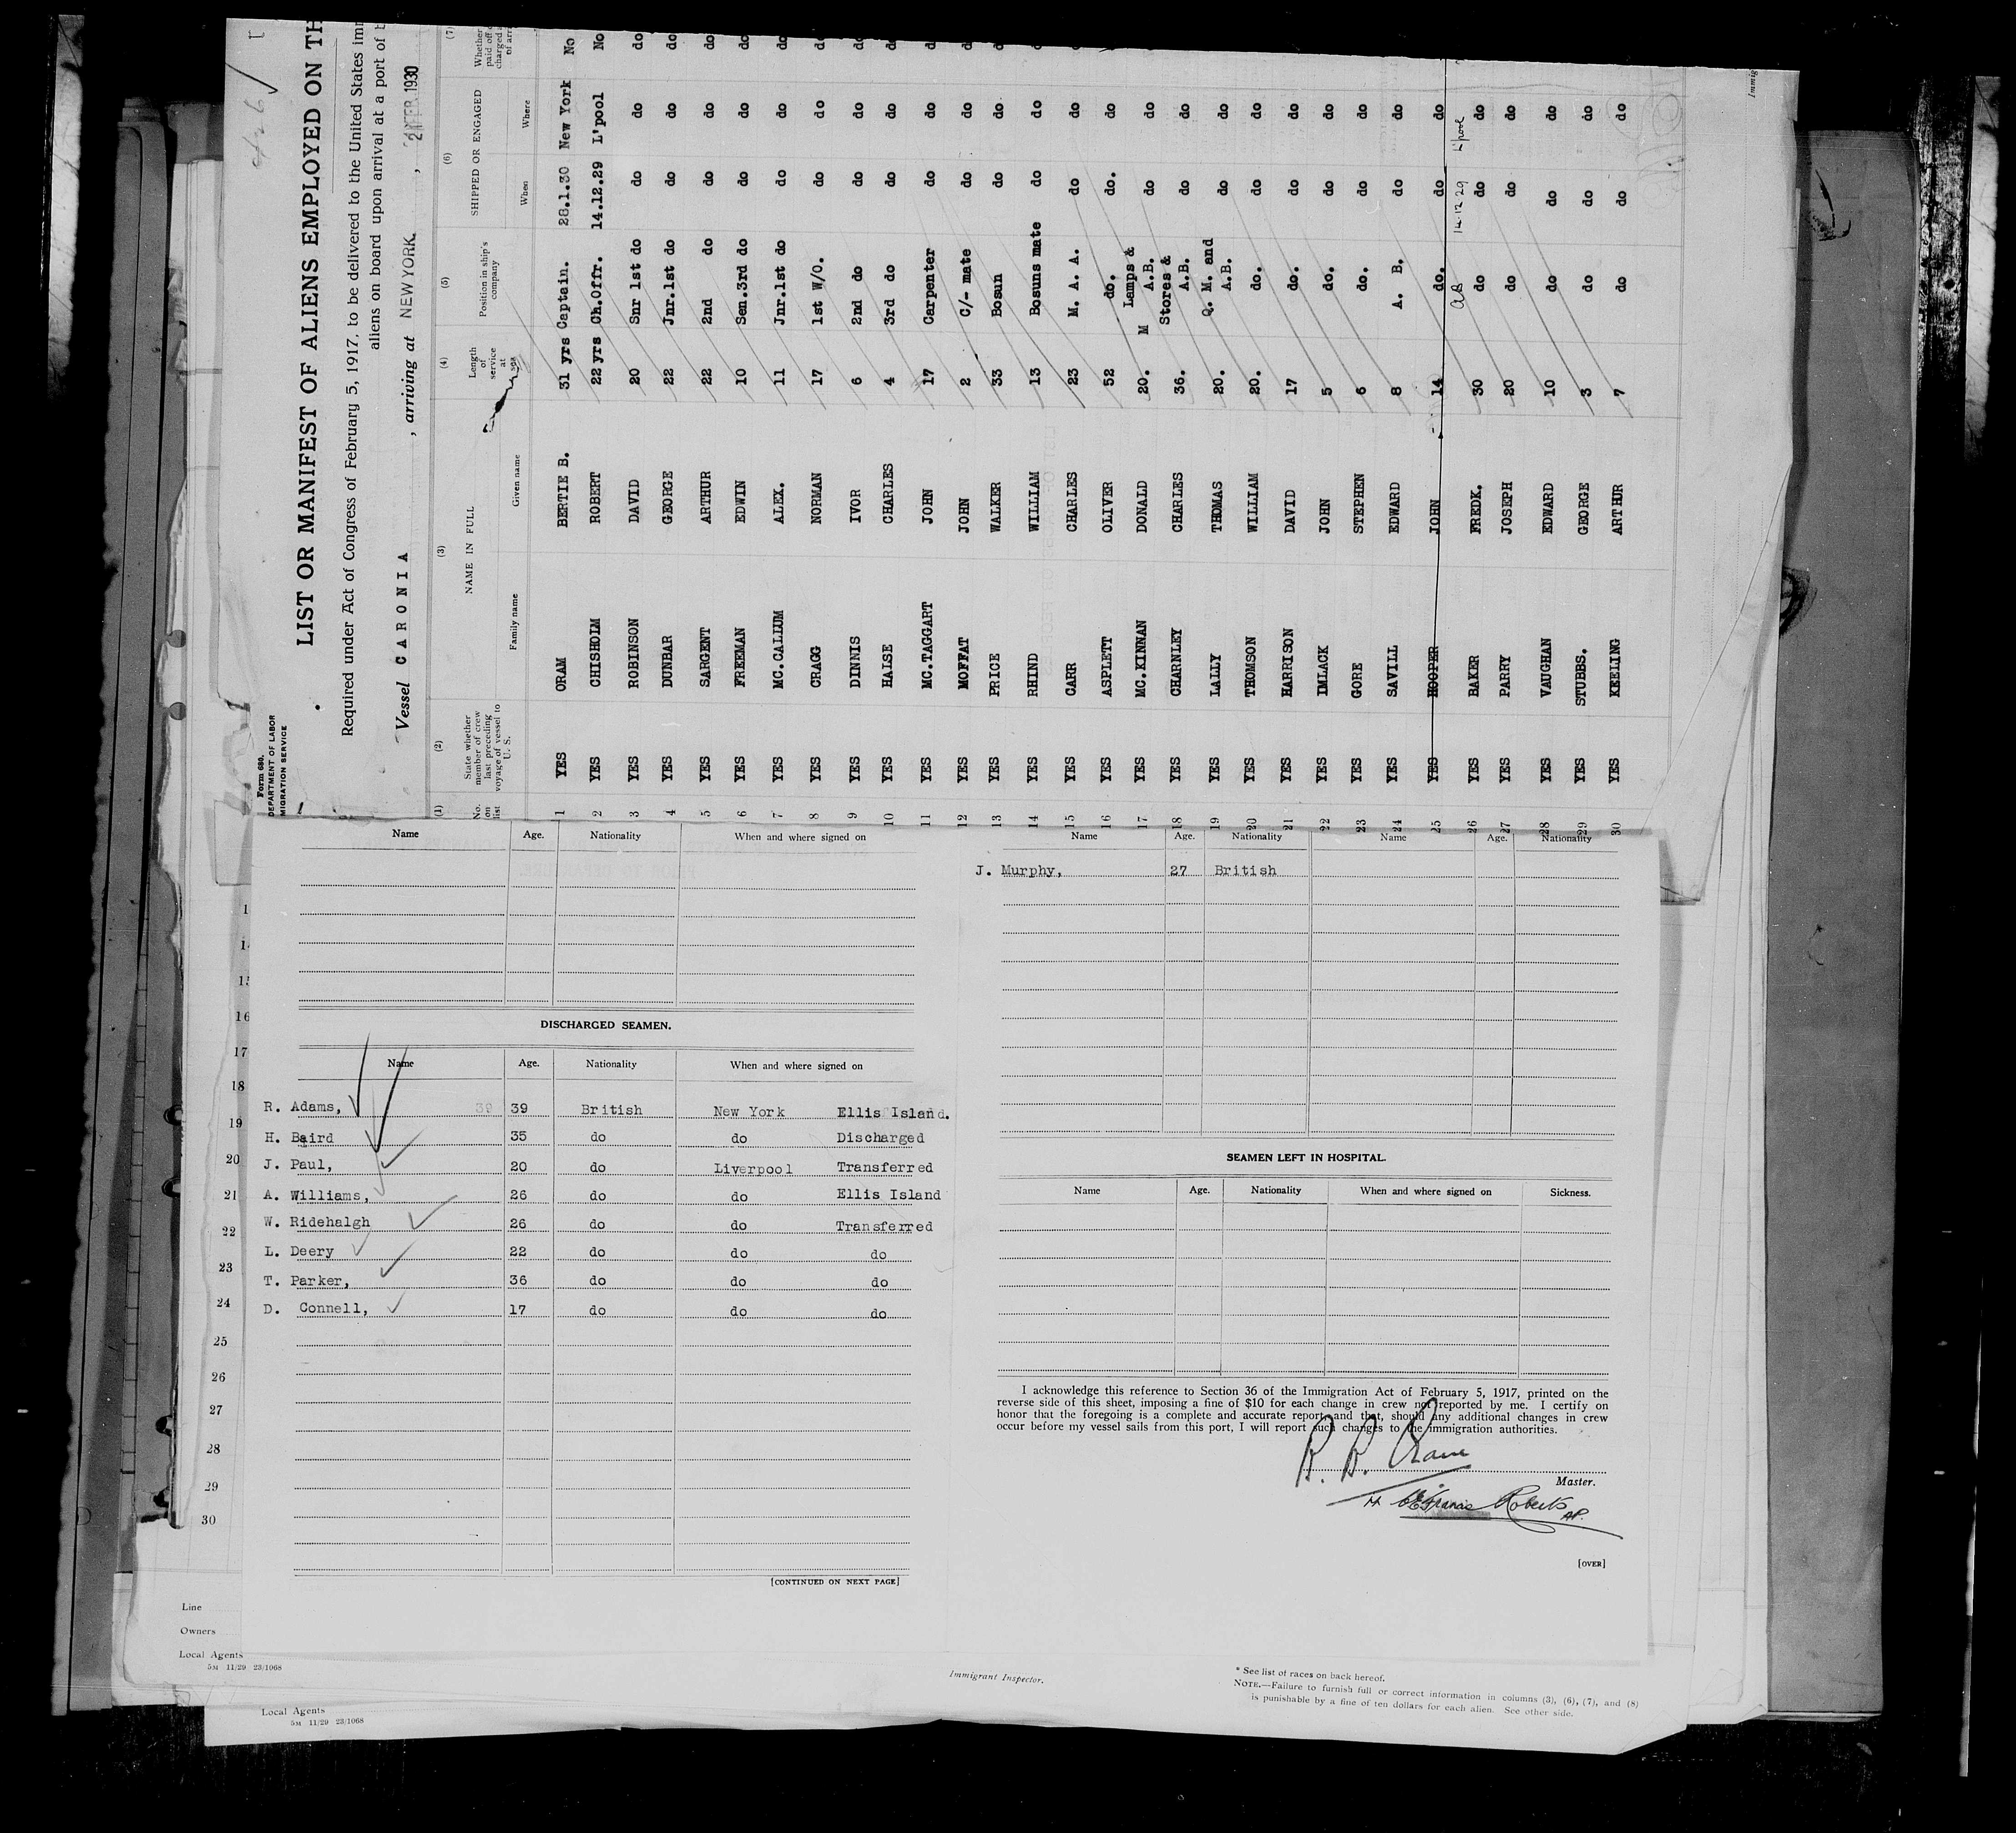 Form 680.
DEPARTMENT OF LABOR
MIGRATION SERVICE
LIST OR MANIFEST OF ALIENS EMPLOYED ON TH
Required under Act of Congress of February 5, 1917, to be delivered to the United States im
aliens on board upon arrival at a port of
Vessel CARONIA, arriving at NEW YORK, FEB 1930
(1) (2) (3) (4) (5) (6) (7)
No. on list
State whether member of crew last preceding voyage of vessel to U. S.
NAME IN FULL
Family name Given name
Length of service at sea
Position in ship's company
SHIPPED OR ENGAGED
When Where
1 YES ORAM BERTIE B. 31 yrs Captain. 28.1.30 New York No
2 YES CHISHOLM ROBERT 22 yrs Ch.Offr. 14.12.29 L'pool No
3 YES ROBINSON DAVID 20 Snr 1st do do do do
4 YES DUNBAR GEORGE 22 Jnr.1st do do do do
5 YES SARGENT ARTHUR 22 2nd do do do do
6 YES FREEMAN EDWIN 10 Sen.3rd do do do do
7 YES MC.CALLUM ALEX. 11 Jnr.1st do do do do
8 YES CRAGG NORMAN 17 1st W/O. do do do
9 YES DINNIS IVOR 6 2nd do do do do
10 YES HALSE CHARLES 4 3rd do do do do
11 YES MC.TAGGART JOHN 17 Carpenter do do do
12 YES MOFFAT JOHN 2 C/- mate do do do
13 YES PRICE WALKER 33 Bosun do do do
14 YES RHIND WILLIAM 13 Bosuns mate do do
15 YES CARR CHARLES 23 M. A. A. do do
16 YES ASPLETT OLIVER 52 do. do. do
17 YES MC.KINNAN DONALD 20. M Lamps & A.B. do do
18 YES CHARNLEY CHARLES 36. Stores & A.B. do do
19 YES LALLY THOMAS 20. Q. M. and A.B. do do
20 YES THOMSON WILLIAM 20. do. do do
21 YES HARRISON DAVID 17 do. do do
22 YES IMLACK JOHN 5 do. do do
23 YES GORE STEPHEN 6 do. do do
24 YES SAVILL EDWARD 8 A. B. do do
25 YES HOOPER JOHN 14 do. do do
AB 14.12.29 L'pool
26 YES BAKER FREDK. 30 do do do
27 YES PARRY JOSEPH 20 do do do
28 YES VAUGHAN EDWARD 10 do do do
29 YES STUBBS. GEORGE 3 do do do
30 YES KEELING ARTHUR 7 do do do
Name Age. Nationality When and where signed on
DISCHARGED SEAMEN.
Name Age. Nationality When and where signed on
R. Adams, 39 British New York Ellis Island.
H. Baird 35 do do Discharged
J. Paul, 20 do Liverpool Transferred
A. Williams, 26 do do Ellis Island
W. Ridehalgh 26 do do Transferred
L. Deery 22 do do do
T. Parker, 36 do do do
D. Connell, 17 do do do
[CONTINUED ON NEXT PAGE]
Name Age. Nationality Name Age. Nationality
J. Murphy, 27 British
SEAMEN LEFT IN HOSPITAL.
Name Age. Nationality When and where signed on Sickness.
I acknowledge this reference to Section 36 of the Immigration Act of February 5, 1917, printed on the
reverse side of this sheet, imposing a fine of $10 for each change in crew not reported by me. I certify on
honor that the foregoing is a complete and accurate report, and that, should any additional changes in crew
occur before my vessel sails from this port, I will report such changes to the immigration authorities.
Master.
Francis Roberts
[OVER]
16
17
18
19
20
21
22
23
24
25
26
27
28
29
30
Line
Owners
Local Agents
5M 11/29 23/1068
Immigrant Inspector.
* See list of races on back hereof.
NOTE.—Failure to furnish full or correct information in columns (3), (6), (7), and (8)
is punishable by a fine of ten dollars for each alien. See other side.
Local Agents
5M 11/29 23/1068